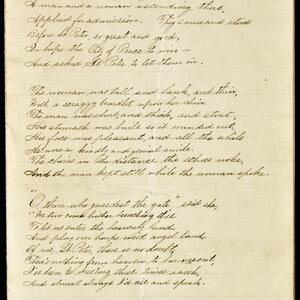 A man and a woman ascending there,
Applied for admission. They came and stood
Before St. Peter, so great and good,
In hope the City of Peace to win—
And asked St. Peter to let them in.
The woman was tall and lank, and thin,
With a scraggy beardlet upon her chin.
The man was short, and thick, and stout,
His stomach was built so it rounded out,
His face was pleasant, and all the while
He wore a kindly and genial smile.
The choirs in the distance the echoes woke,
And the man kept still while the woman spoke.
"O thou who guardest the gate" said she,
"We two come hither beseeching thee
To let us enter the heavenly land,
And play our harps with the angel band.
Of me, St. Peter, there is no doubt,
There's nothing from heaven to bar me out,
I've been to meeting three times a week,
And almost always I'd rise and speak.